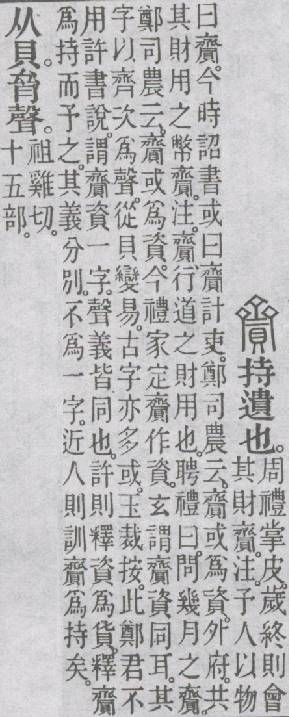 齎持遺也。
周禮掌皮。歲終則會
其財齎。注。予人以物
曰齎。今時詔書或曰齎計吏。鄭司農云。齎或爲資。外府。共
其財用之幣齎。注。齎行道之財用也。聘禮曰。問幾月之齎。
鄭司農云。齎或爲資。今禮家定齎作資。玄謂齎資同耳。其
字以齊次爲聲。從貝變易。古字亦多或。玉裁按。此鄭君不
用許書說。謂齎資一字。聲義皆同也。許則釋資爲貨。釋齎
爲持而予之。其義分別。不爲一字。近人則訓齎爲持矣。
从貝。齊聲。
祖雞切。
十五部。